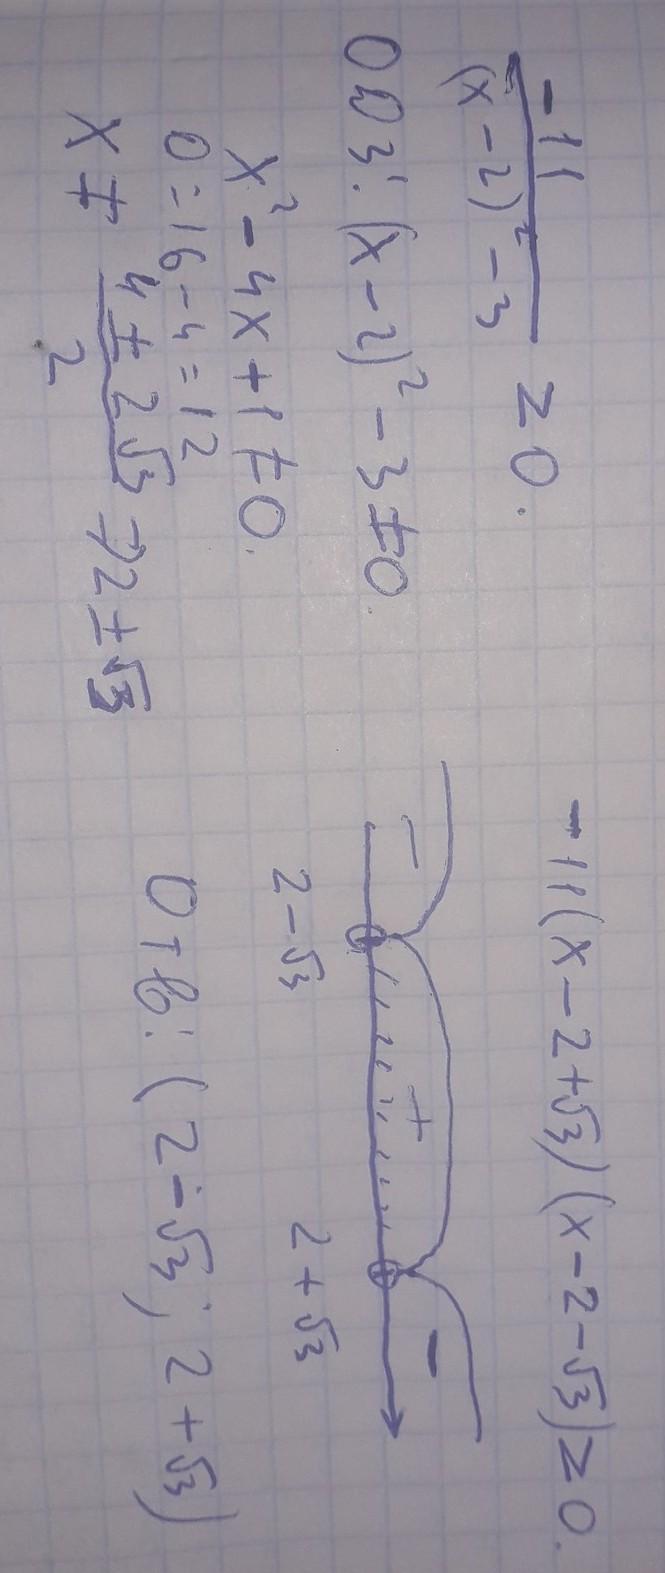 -11 / (x-2)² - 3 ≥ 0.
ОДЗ: (x-2)² - 3 ≠ 0.
x² - 4x + 1 ≠ 0.
D = 16 - 4 = 12
x ≠ 4 ± 2√3 / 2 → 2 ± √3
-11(x-2+√3)(x-2-√3) ≥ 0.
- + -
2-√3 2+√3
Отв: (2-√3; 2+√3)